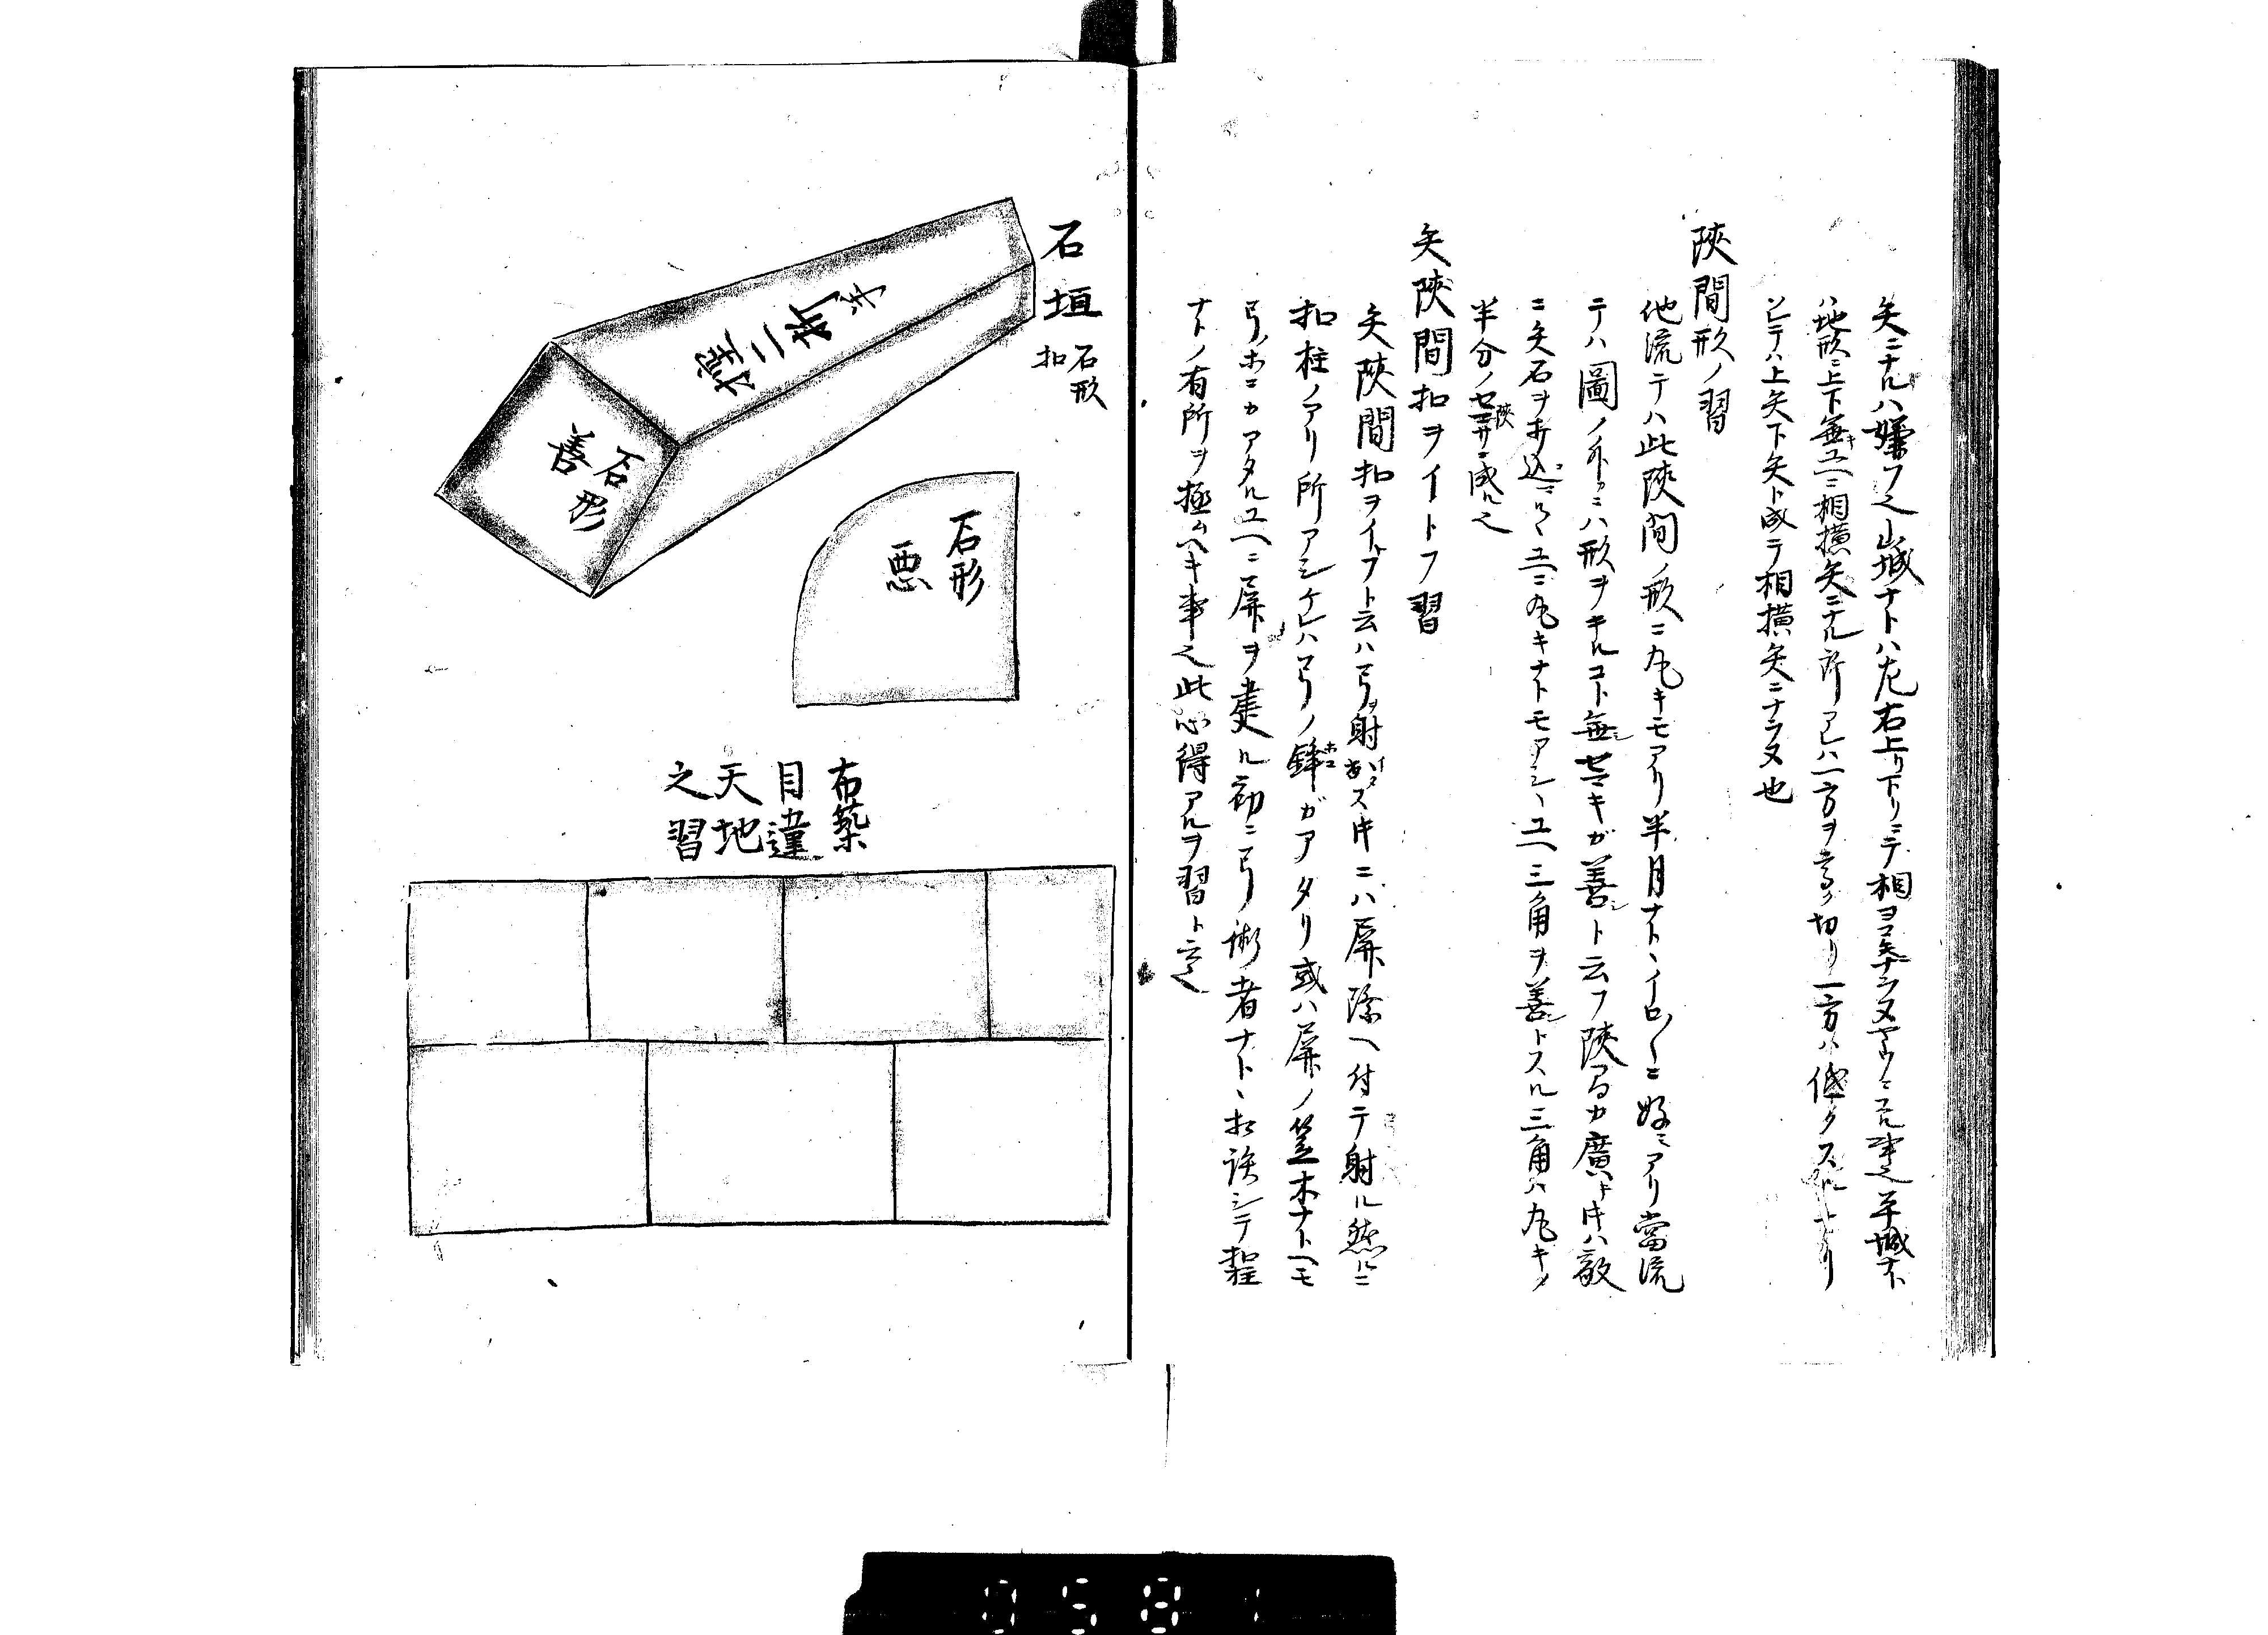 矢ニナルハ嫌フ之山城ナトハ左右上リ下リニテ相ヨコ矢ナラヌヤウニスル事之平城ナト
ハ地形ニ上下無キユヘニ相横矢ニナル所アレハ一方ヲ高ク切リ一方ハ低クスルナリ
シテハ上矢下矢ト成テ相横矢ニナラヌ也
陜間形ノ習
他流テハ此陜間ノ形ニ丸キモアリ半月ナトヽイロ〱ニ好ミアリ當流
テハ圖ノ外ニハ形ヲキルコト無シセマキガ善シト云フ陜間ノ口カ廣ケレハ敵
ニ矢石ヲ打込ニユヘニ丸キナトモアシヽユヘ三角ヲ善トスル三角ハ丸キノ
半分ノセマサニ成ル之
矢陜間扣ヲイトフ習
矢陜間扣ヲイトフト云ハ弓ヲ射出ス時ニハ屏際ヘ付テ射ル然ルニ
扣柱ノアリ所アシケレハ弓ノ鋒ガアタリ或ハ屏ノ笠木ナトヘモ
弓ノホコカアタルユヘニ屏ヲ建ル初ニ弓ノ術者ナトヽ相談シテ扣柱
ナトノ有所ヲ極ムヘキ事之此心得アルヲ習ト云之
石垣
石形
扣
石形
善
石形
悪
布築
目違
天地
之習